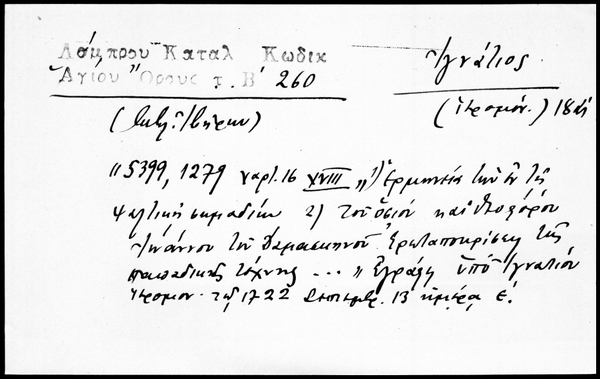 Λάμπρου Καταλ Κωδικ
Ἁγίου Ὄρους τ. Β' 260
Ἰγνάτιος
(ἱερομόν.) 18ος
(Ἰβήρων)
"5399, 1279 χαρτ. 16 XVIII "1) Ἑρμηνεία τῆς
ψαλτικῆς σημαδίων 2) τοῦ ὁσίου καὶ θεοφόρου
Ἰωάννου τοῦ Δαμασκηνοῦ Ἐρωταποκρίσεις τῆς
παπαδικῆς τέχνης ... " Ἐγράφη ὑπὸ Ἰγνατίου
ἱερομον. τῷ 1722 Σεπτεμβρ. 13 ἡμέρᾳ ε΄.